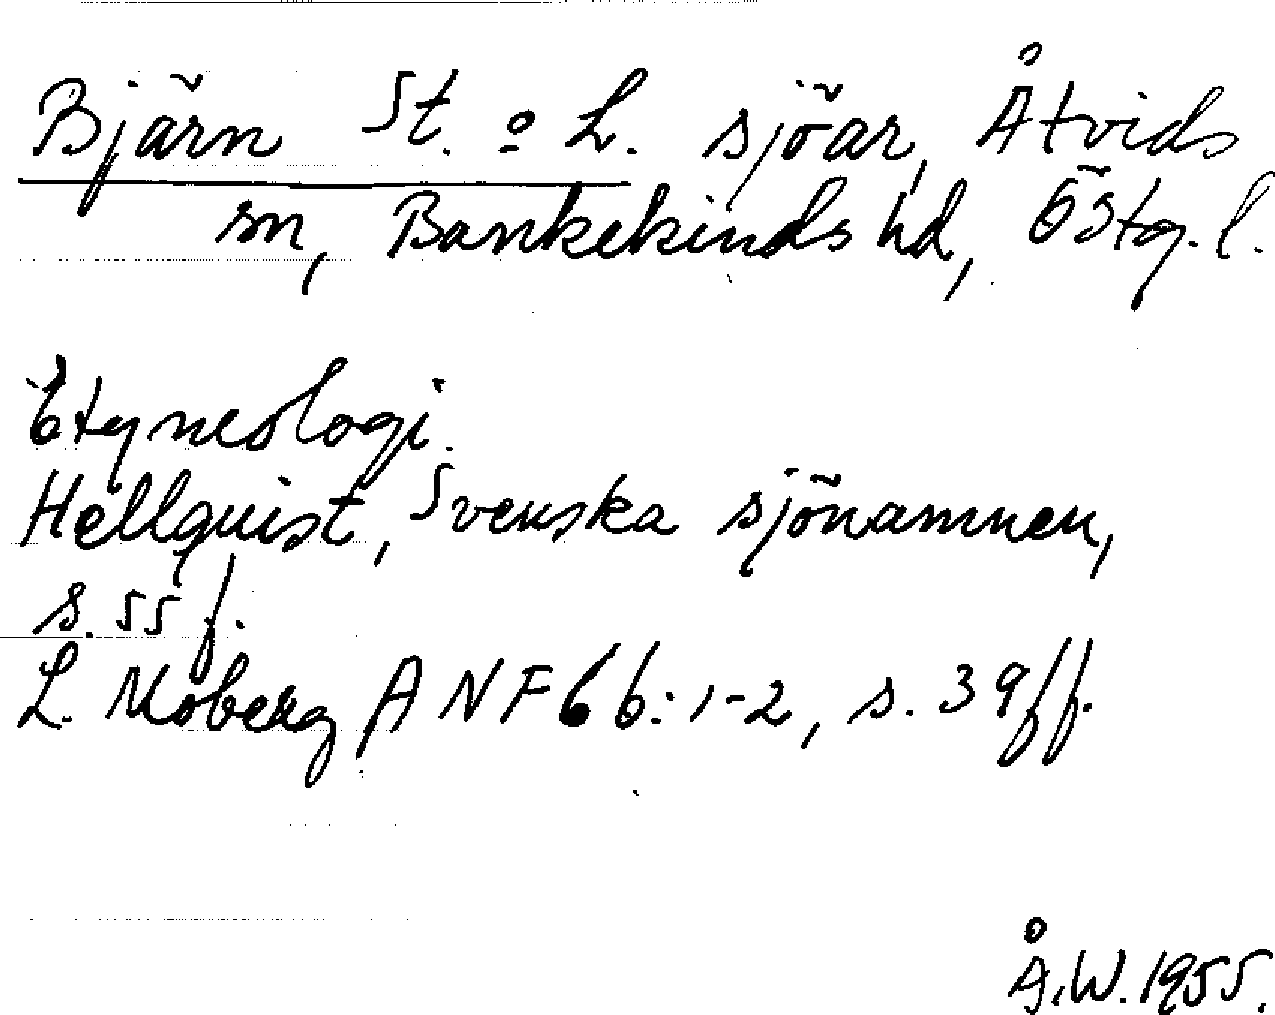 Bjärn St. o L. sjöar, Åtvids
sn, Bankekinds hd, Östg. l.
Etymologi.
Hellquist, Svenska sjönamnen,
s. 55 f.
L. Moberg ANF 66:1-2, s. 39 ff.
Å.W. 1955.